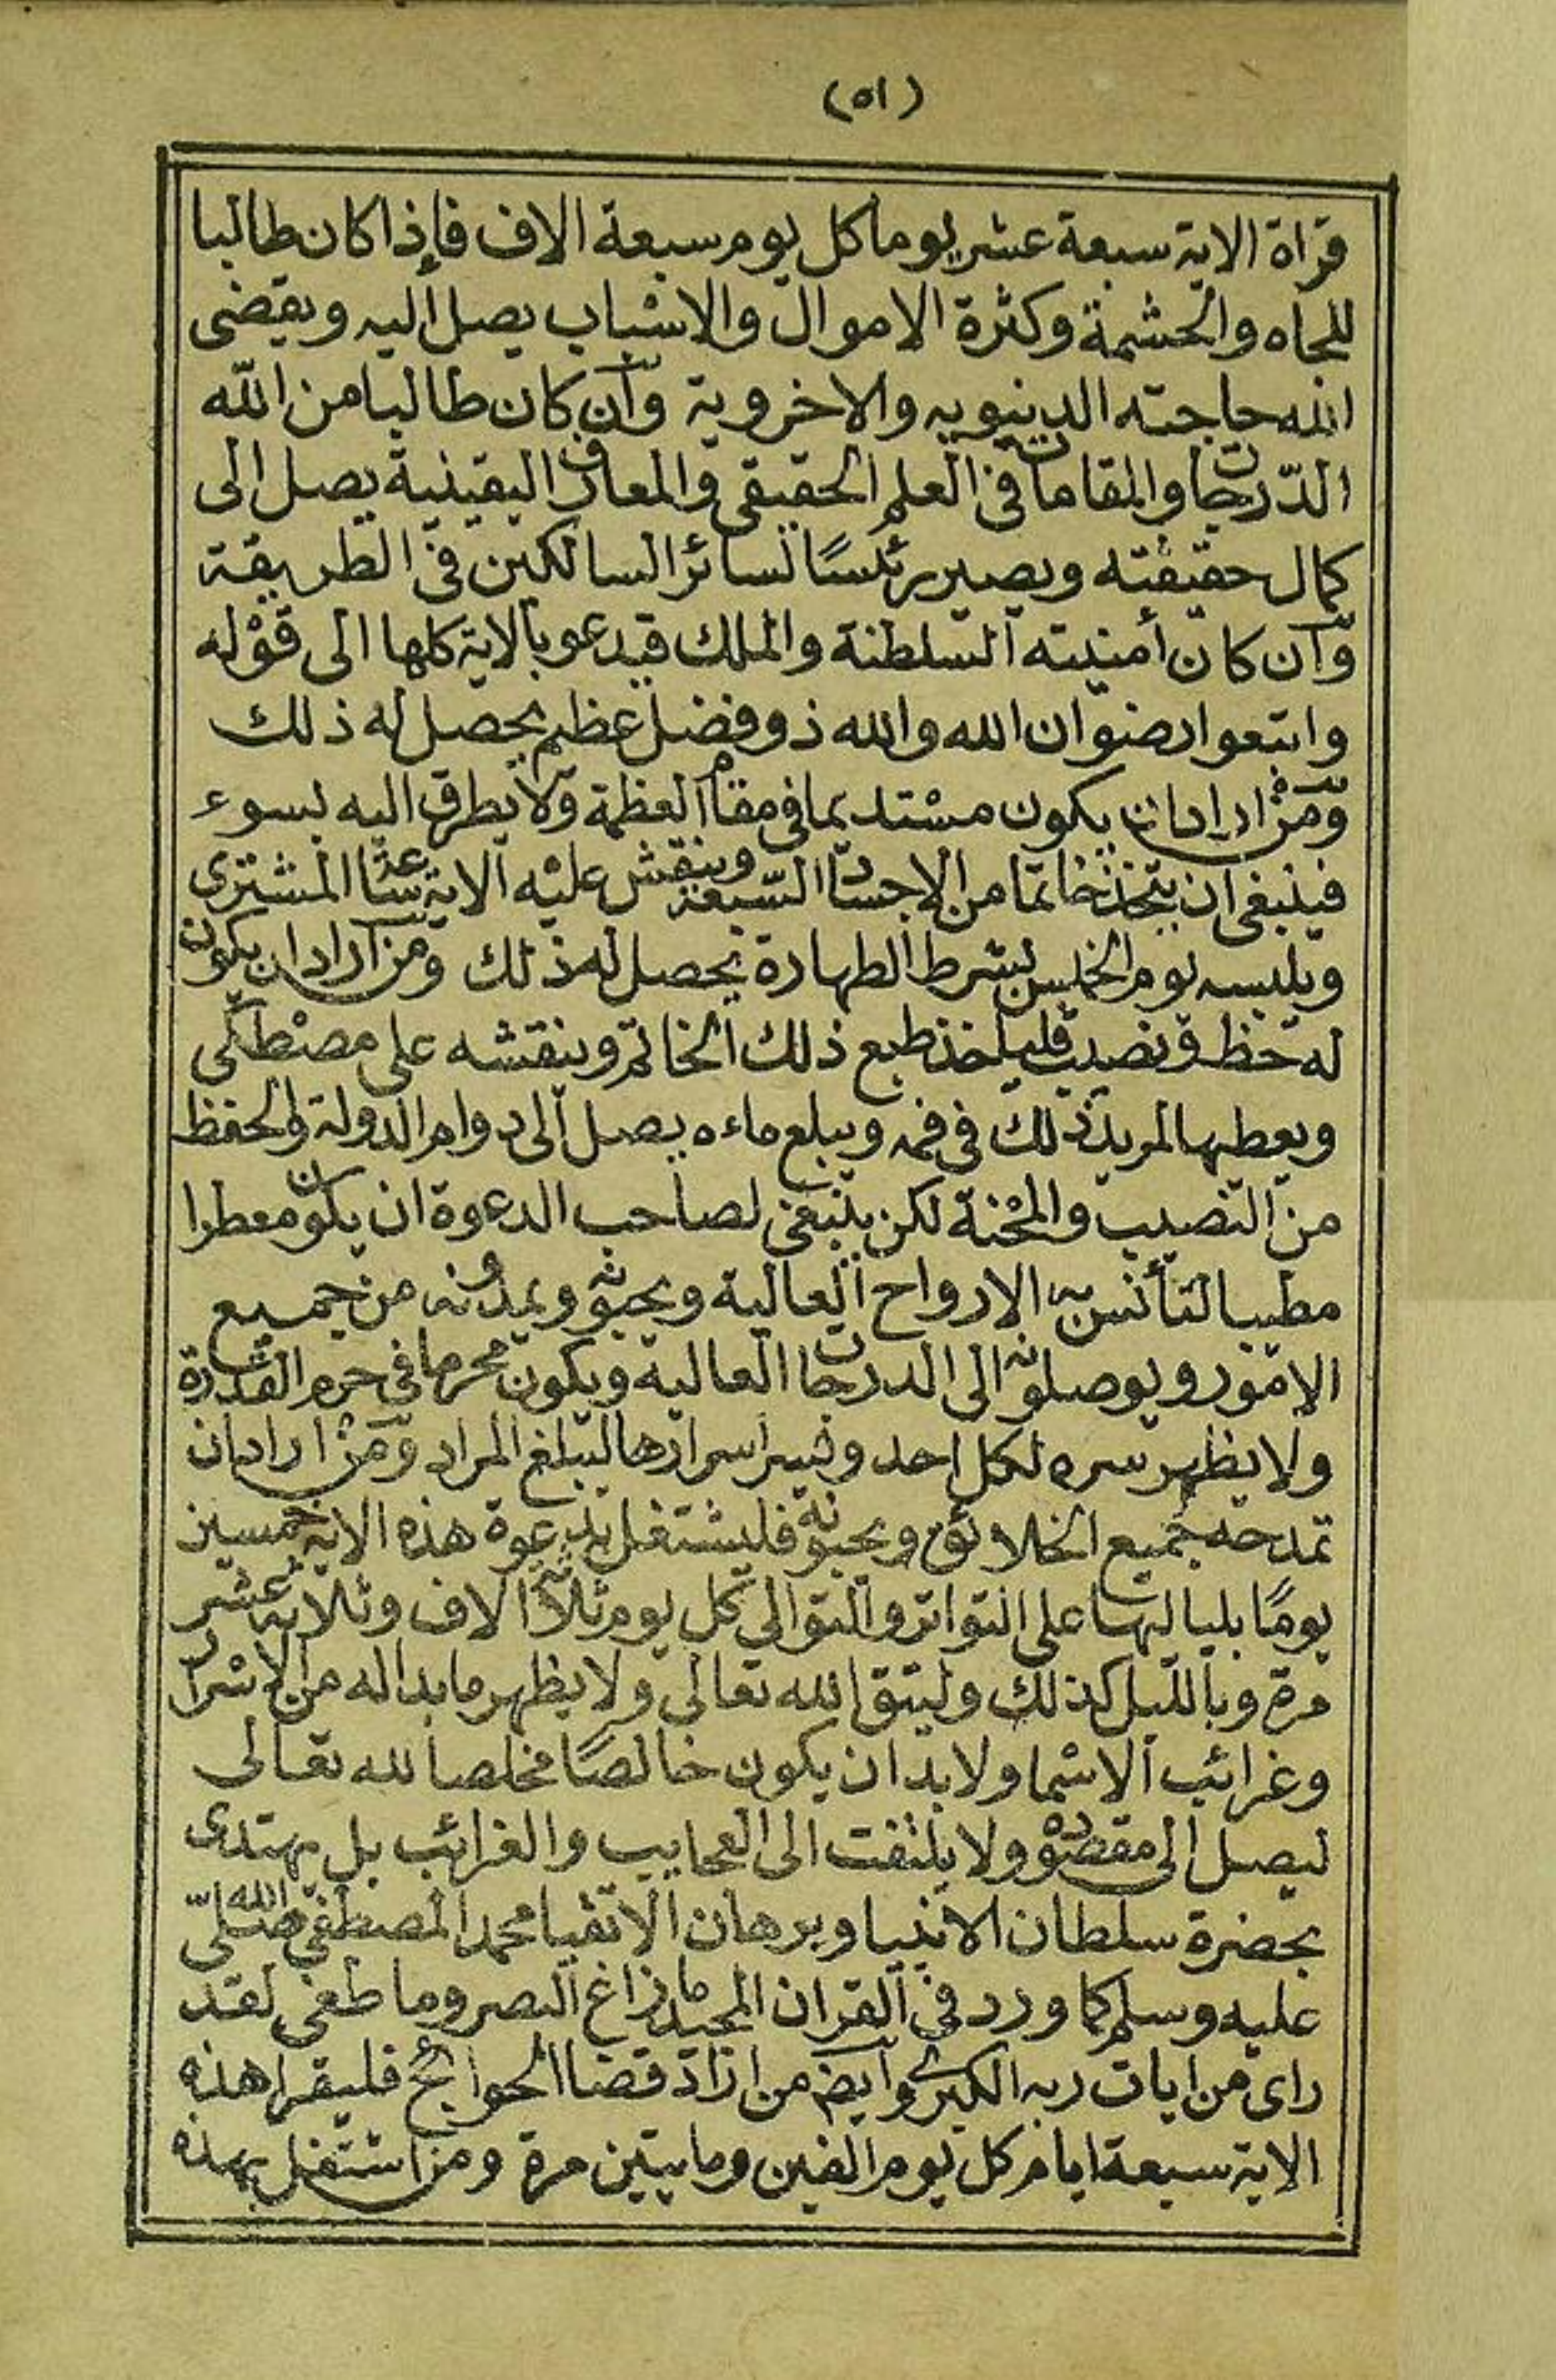 (٥١)
قراة الاية سبعة عشر يوما كل يوم سبعة الاف فإذا كان طالبا
للجاه والحشمة وكثرة الاموال والاسباب يصل إليه ويقضى
الله حاجته الدنيويه والاخروية وان كان طالبا من الله
الدرجات والمقامات فى العلم الحقيقى والمعارف اليقينية يصل الى
كمال حقيقته ويصير رئسًا لسائر السالكين فى الطريقة
وان كان أمنيته السلطنة والملك فيدعو بالاية كلها الى قوله
واتبعوا رضوان الله والله ذو فضل عظيم يحصل له ذلك
ومن اراد ان يكون مستديما فى مقام العظمة ولا يطرق اليه بسوء
فينبغى ان يتخذ خاتما من الاجساد السبعة وينقش عليه الاية المشترى
ويلبسه يوم الخميس بشرط الطهارة يحصل له ذلك ومن اراد ان يكون
له حظ ونصيب فليأخذ طبع ذلك الخاتم وينقشه على مصطكى
ويعطها لمريد ذلك فى فمه ويبلع ماءه يصل الى دوام الدولة والحفظ
من النصيب والمحنة لكن ينبغى لصاحب الدعوة ان يكون معطرا
مطيبا لتأنس به الارواح العالية ويحبونه ويمدونه من جميع
الامور ويوصلونه الى الدرجات العالية ويكون محرما فى حرم القدرة
ولا يظهر سره لكل احد ويسر اسرارها ليبلغ المراد ومن اراد ان
تمدحه جميع الخلائق ويحبونه فليشتغل بدعوة هذه الاية خمسين
يومًا بلياليها على التواتر والتوالى كل يوم ثلاثة الاف وثلاثة عشر
مرة وبالليل كذلك وليتق الله تعالى ولا يظهر ما بدا له من الاسرار
وغرائب الاسما ولابد ان يكون خالصًا مخلصا لله تعالى
ليصل الى مقصوده ولا يلتفت الى العجايب والغرائب بل يهتدى
بحضرة سلطان الانبيا وبرهان الاتقيا محمد المصطفى صلى الله
عليه وسلم كما ورد فى القران المجيد ما زاغ البصر وما طغى لقد
راى من ايات ربه الكبرى وايضا من اراد قضا الحوائج فليقرا هذه
الاية سبعة ايام كل يوم الفين ومايتين مرة ومن اشتغل بهذه